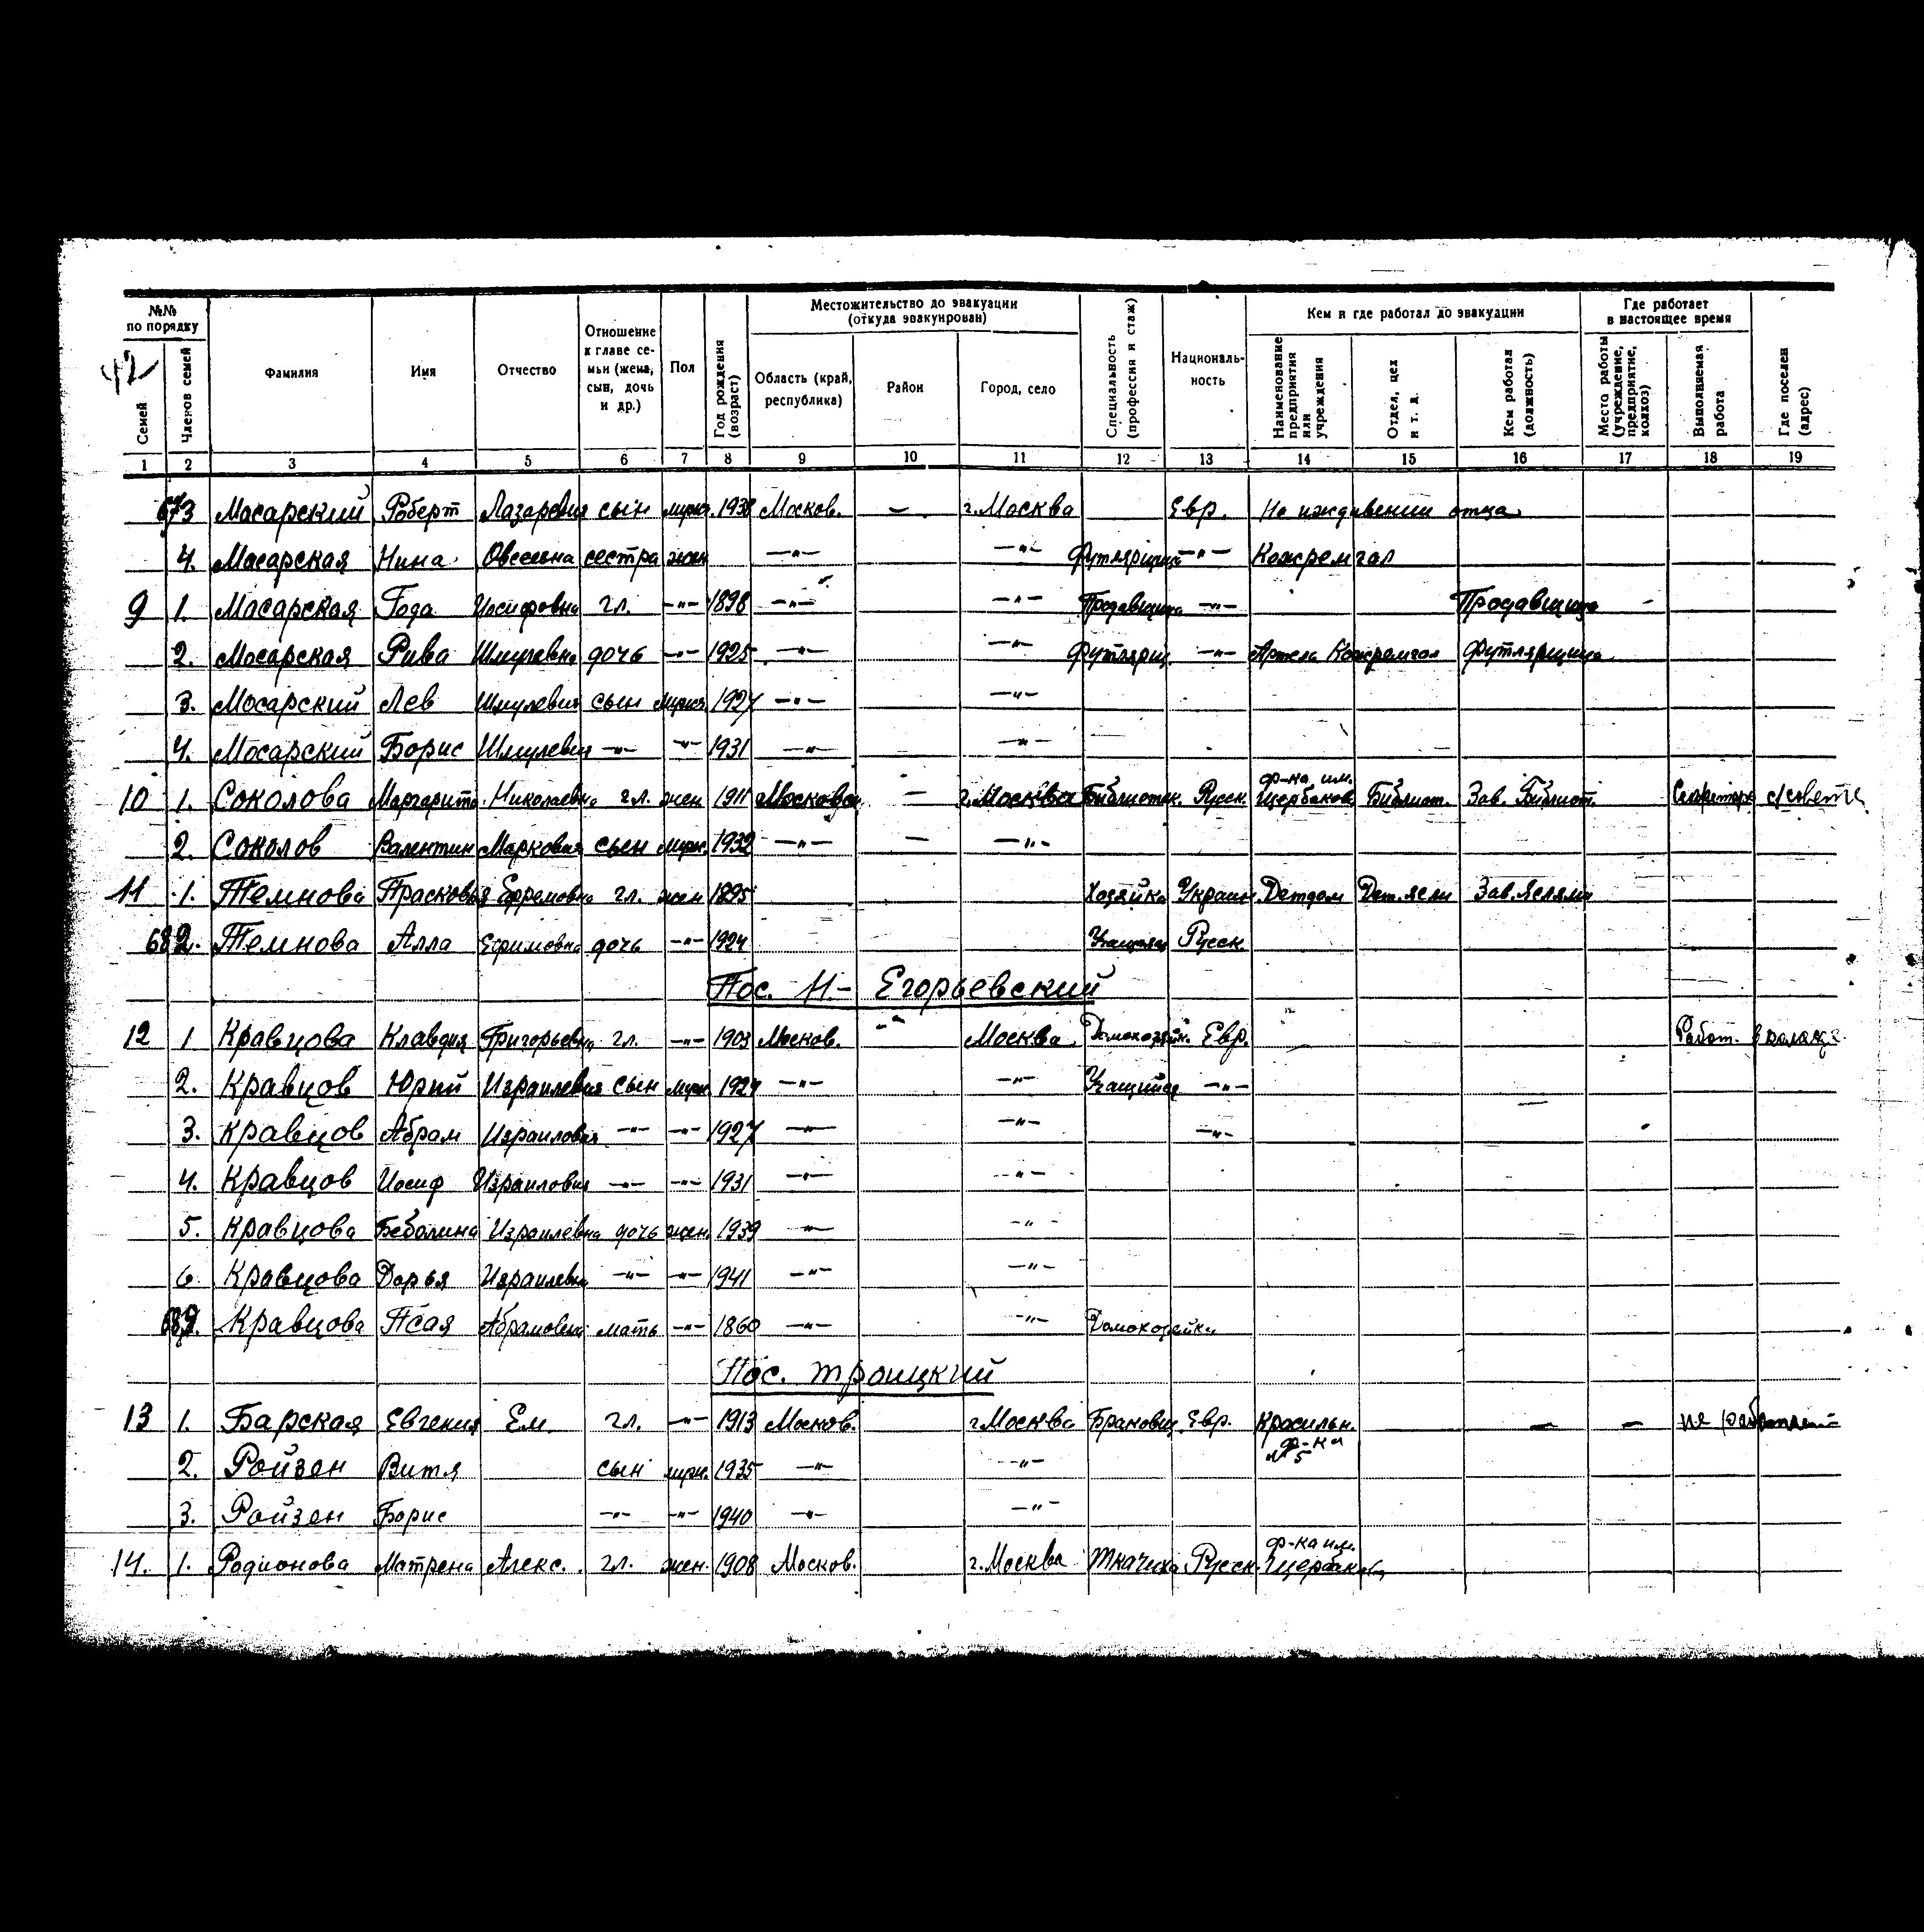 №№ по порядку
42
Семей
Членов семей
Фамилия
Имя
Отчество
Отношение к главе семьи (жена, сын, дочь и др.)
Пол
Год рождения (возраст)
Местожительство до эвакуации (откуда эвакуирован)
Область (край, республика)
Район
Город, село
Специальность (профессия и стаж)
Националь-ность
Кем и где работал до эвакуации
Наименование предприятия или учреждения
Отдел, цех и т. д.
Кем работал (должность)
Где работает в настоящее время
Место работы (учреждение, предприятие, колхоз)
Выполняемая работа
Где поселен (адрес)
1 2 3 4 5 6 7 8 9 10 11 12 13 14 15 16 17 18 19
673 Масарский Роберт Лазаревич сын мужс. 1938 Москов. — г. Москва Евр. На иждивении отца
4. Масарская Нина Овсеевна сестра жен —"— —"— Футлярщица —"— Кожремгал
9 1. Масарская Года Иосифовна гл. —"— 1898 —"— —"— Продавщица —"— Продавщица
2. Мосарская Рива Шмулевна дочь —"— 1925 —"— —"— Футлярщ. —"— Артель Кожремгал Футлярщица
3. Мосарский Лев Шмулевич сын мужс. 1927 —"— —"—
4. Мосарский Борис Шмулевич —"— —"— 1931 —"— —"—
10 1. Соколова Маргарита Николаевна гл. жен 1911 Московск — г. Москва Библиотек. Русск. ф-ка им. Щербаков. Библиот. Зав. Библиот. Секретарь с/совета
2. Соколов Валентин Маркович сын муж. 1932 —"— — —"—
11 1. Темнова Прасковья Ефремовна гл. жен 1895 Хозяйка Украин. Детдом Дет. ясли Зав. Яслями
682. Темнова Алла Ефимовна дочь —"— 1924 Учащаяся Русск
Пос. Н.- Егорьевский
12 1 Кравцова Клавдия Григорьевна гл. —"— 1903 Москов. —"— Москва Домохозяйк. Евр. Работ. в колхозе
2. Кравцов Юрий Израилевич сын муж. 1924 —"— —"— Учащийся —"—
3. Кравцов Абрам Израилович —"— —"— 1927 —"— —"— —"—
4. Кравцов Иосиф Израилович —"— —"— 1931 —"— —"—
5. Кравцова Израилевна дочь жен. 1939 —"— —"—
6 Кравцова Дарья Израилевна —"— —"— 1941 —"— —"—
689. Кравцова Псая Абрамовна мать —"— 1860 —"— —"— Домохозейка
Пос. Троицкий
13 1. Барская Евгения Ем. гл. —"— 1913 Москов. г Москва Браковщ. Евр. Красильн. ф-ка №5 — — не работает
2. Ройзен Витя сын муж. 1935 —"— —"—
3. Ройзен Борис —"— —"— 1940 —"— —"—
14. 1. Родионова Матрена Алекс. гл. жен. 1908 Москов. г. Москва Ткачиха Русск. ф-ка им. Щербакова